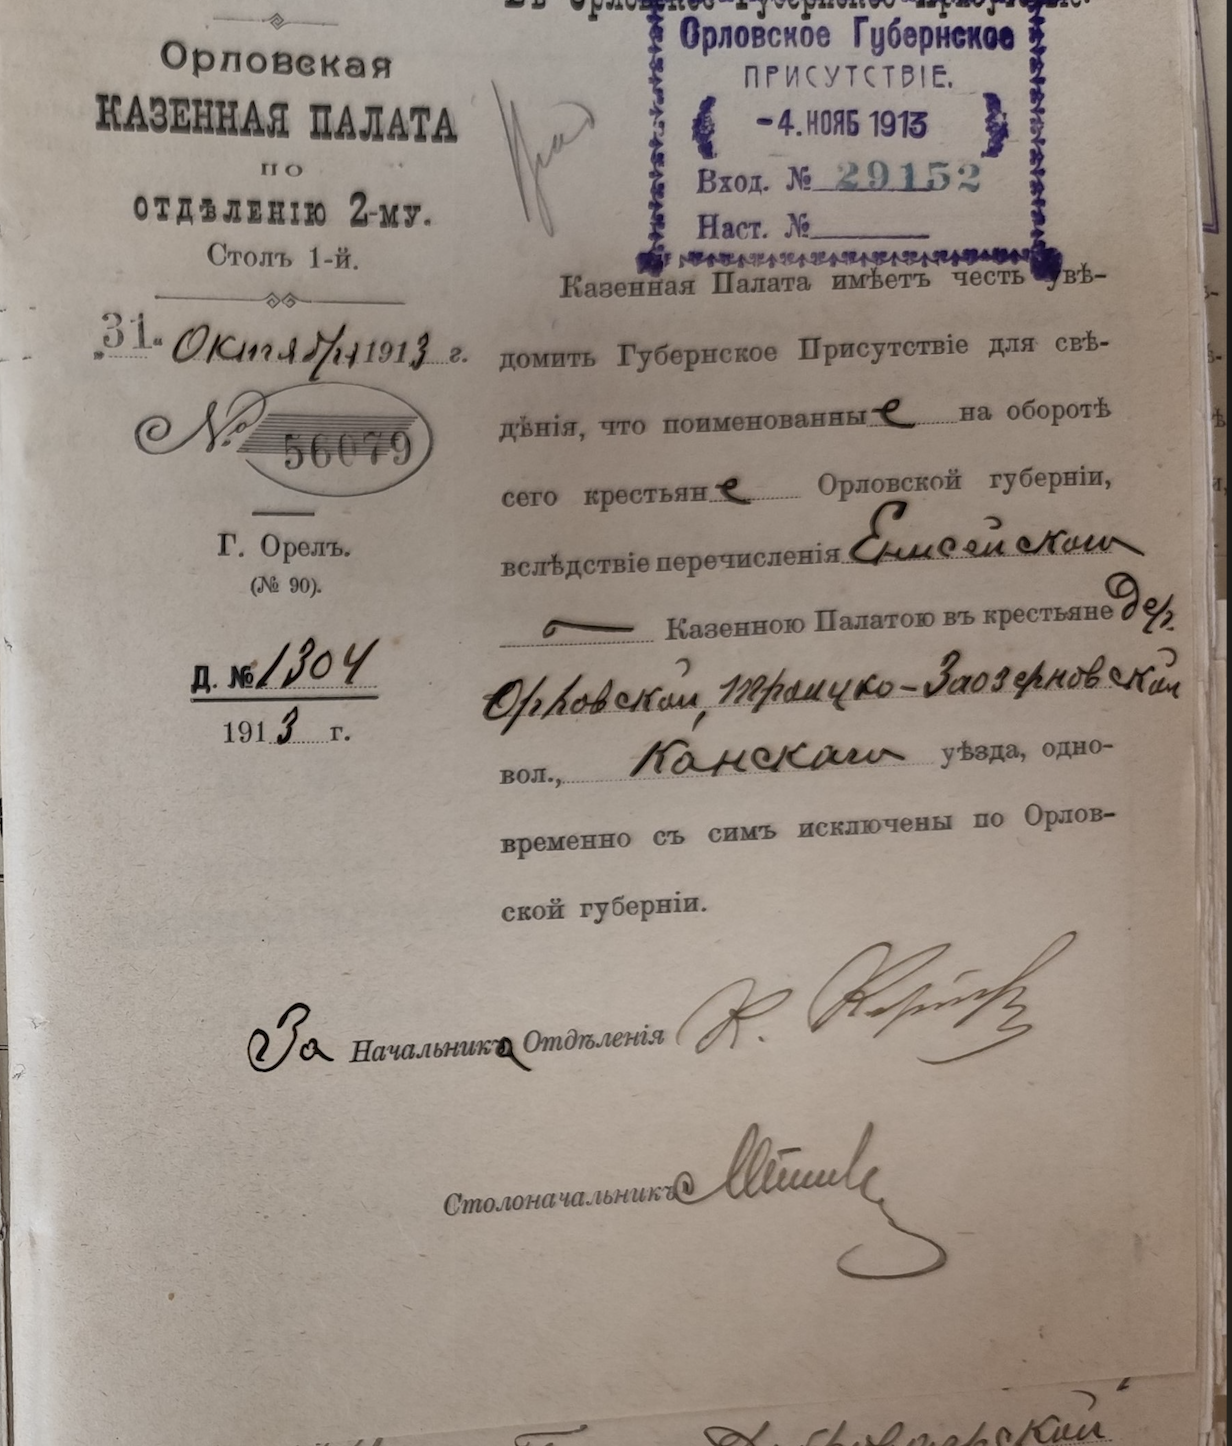 Въ Орловское Губернское Присутствіе.
Орловская
КАЗЕННАЯ ПАЛАТА
ПО
ОТДѢЛЕНІЮ 2-МУ.
Столъ 1-й.
„31“ Октября 1913 г.
№ 56079
Г. Орелъ.
(№ 90).
Д. № 1304
1913 г.
Орловское Губернское
ПРИСУТСТВІЕ.
-4. НОЯБ 1913
Вход. № 29152
Наст. №
Казенная Палата имѣетъ честь увѣ-
домить Губернское Присутствіе для свѣ-
дѣнія, что поименованные на оборотѣ
сего крестьяне Орловской губерніи,
вслѣдствіе перечисленія Енисейскою
Казенною Палатою въ крестьяне дер.
Орловской, Троицко-Заозерновской
вол., Канскаго уѣзда, одно-
временно съ симъ исключены по Орлов-
ской губерніи.
За Начальника Отдѣленія К.
Столоначальникъ